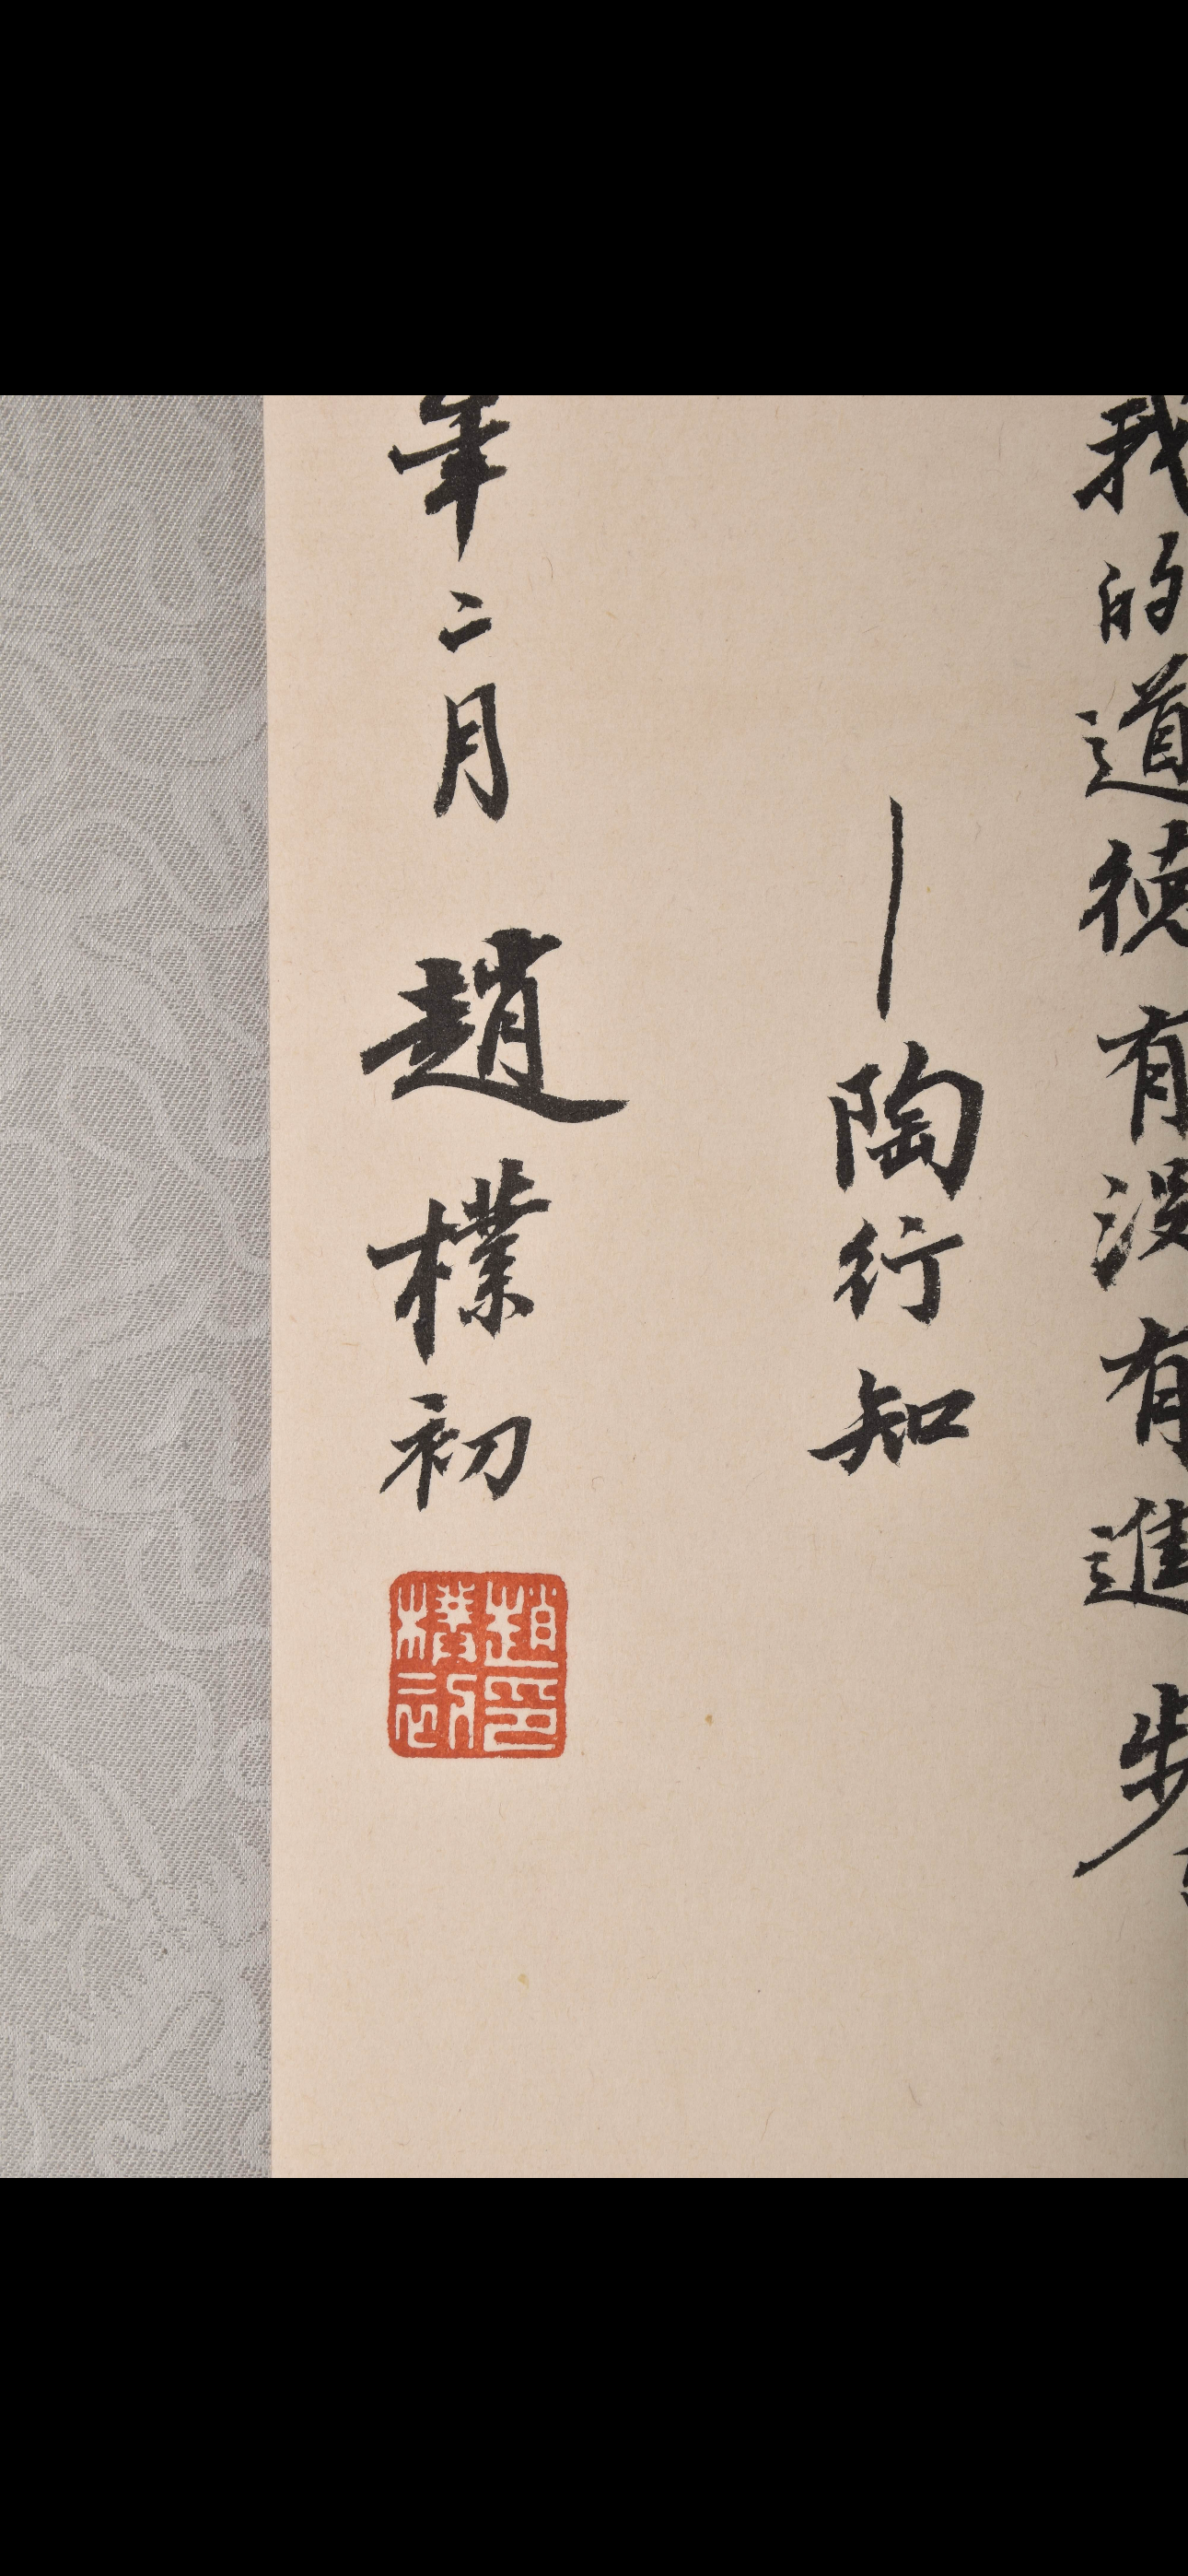 我的道德有没有進步
—陶行知
年二月 趙樸初
趙印樸初